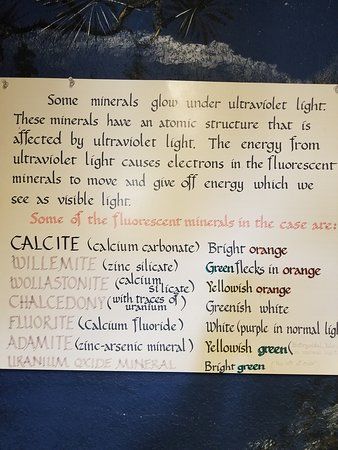 Some minerals glow under ultraviolet light.
These minerals have an atomic structure that is
affected by ultraviolet light. The energy from
ultraviolet light causes electrons in the fluorescent
minerals to move and give off energy which we
see as visible light.
Some of the fluorescent minerals in the case are:
CALCITE (calcium carbonate) Bright orange
WILLEMITE (zinc silicate) Green flecks in orange
WOLLASTONITE (calcium silicate) Yellowish orange
CHALCEDONY (with traces of uranium) Greenish white
FLUORITE (Calcium fluoride) White (purple in normal light
ADAMITE (zinc-arsenic mineral) Yellowish green (
URANIUM OXIDE MINERAL Bright green